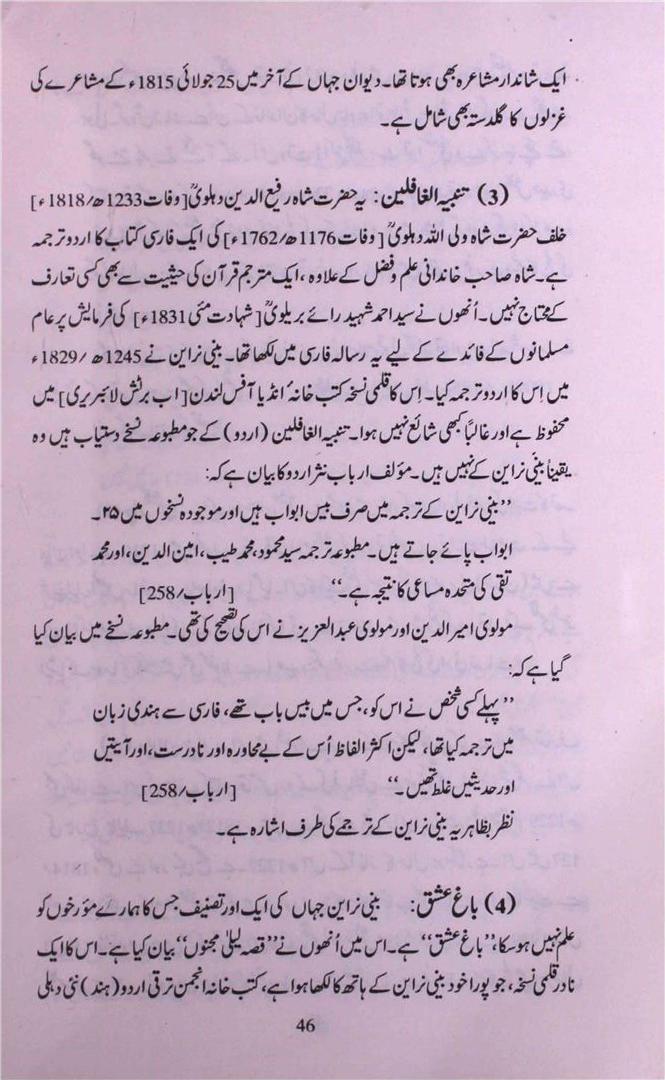 ایک شاندار مشاعرہ بھی ہوتا تھا۔ دیوان جہاں کے آخر میں 25 جولائی 1815ء کے مشاعرے کی
غزلوں کا گلدستہ بھی شامل ہے۔
(3) تنبیہ الغافلین: یہ حضرت شاہ رفیع الدین دہلویؒ [وفات 1233ھ/1818ء]
خلف حضرت شاہ ولی اللہ دہلویؒ [وفات 1176ھ/1762ء] کی ایک فارسی کتاب کا اردو ترجمہ
ہے۔ شاہ صاحب خاندانی علم و فضل کے علاوہ، ایک مترجم قرآن کی حیثیت سے بھی کسی تعارف
کے محتاج نہیں۔ اُنھوں نے سید احمد شہید رائے بریلویؒ [شہادت مئی 1831ء] کی فرمایش پر عام
مسلمانوں کے فائدے کے لیے یہ رسالہ فارسی میں لکھا تھا۔ بینی نراین نے 1245ھ/1829ء
میں اِس کا اردو ترجمہ کیا۔ اِس کا قلمی نسخہ کتب خانۂ انڈیا آفس لندن [اب برٹش لائبریری] میں
محفوظ ہے اور غالباً کبھی شائع نہیں ہوا۔ تنبیہ الغافلین (اردو) کے جو مطبوعہ نسخے دستیاب ہیں وہ
یقیناً بینی نراین کے نہیں ہیں۔ مؤلف ارباب نثر اردو کا بیان ہے کہ:
”بینی نراین کے ترجمہ میں صرف بیس ابواب ہیں اور موجودہ نسخوں میں ۲۵۔
ابواب پائے جاتے ہیں۔ مطبوعہ ترجمہ سید محمود، محمد طیب، امین الدین، اور محمد
تقی کی متحدہ مساعی کا نتیجہ ہے۔“ [ارباب/258]
مولوی امیر الدین اور مولوی عبدالعزیز نے اس کی تصحیح کی تھی۔ مطبوعہ نسخے میں بیان کیا
گیا ہے کہ:
”پہلے کسی شخص نے اس کو، جس میں بیس باب تھے، فارسی سے ہندی زبان
میں ترجمہ کیا تھا، لیکن اکثر الفاظ اُس کے بے محاورہ اور نادرست، اور آیتیں
اور حدیثیں غلط تھیں۔“ [ارباب/258]
نظر بظاہر یہ بینی نراین کے ترجمے کی طرف اشارہ ہے۔
(4) باغِ عشق: بینی نراین جہاں کی ایک اور تصنیف جس کا ہمارے مؤرخوں کو
علم نہیں ہوسکا، ”باغ عشق“ ہے۔ اس میں اُنھوں نے ”قصہ لیلیٰ مجنوں“ بیان کیا ہے۔ اس کا ایک
نادر قلمی نسخہ، جو پورا خود بینی نراین کے ہاتھ کا لکھا ہوا ہے، کتب خانہ انجمن ترقی اردو (ہند) نئی دہلی
46